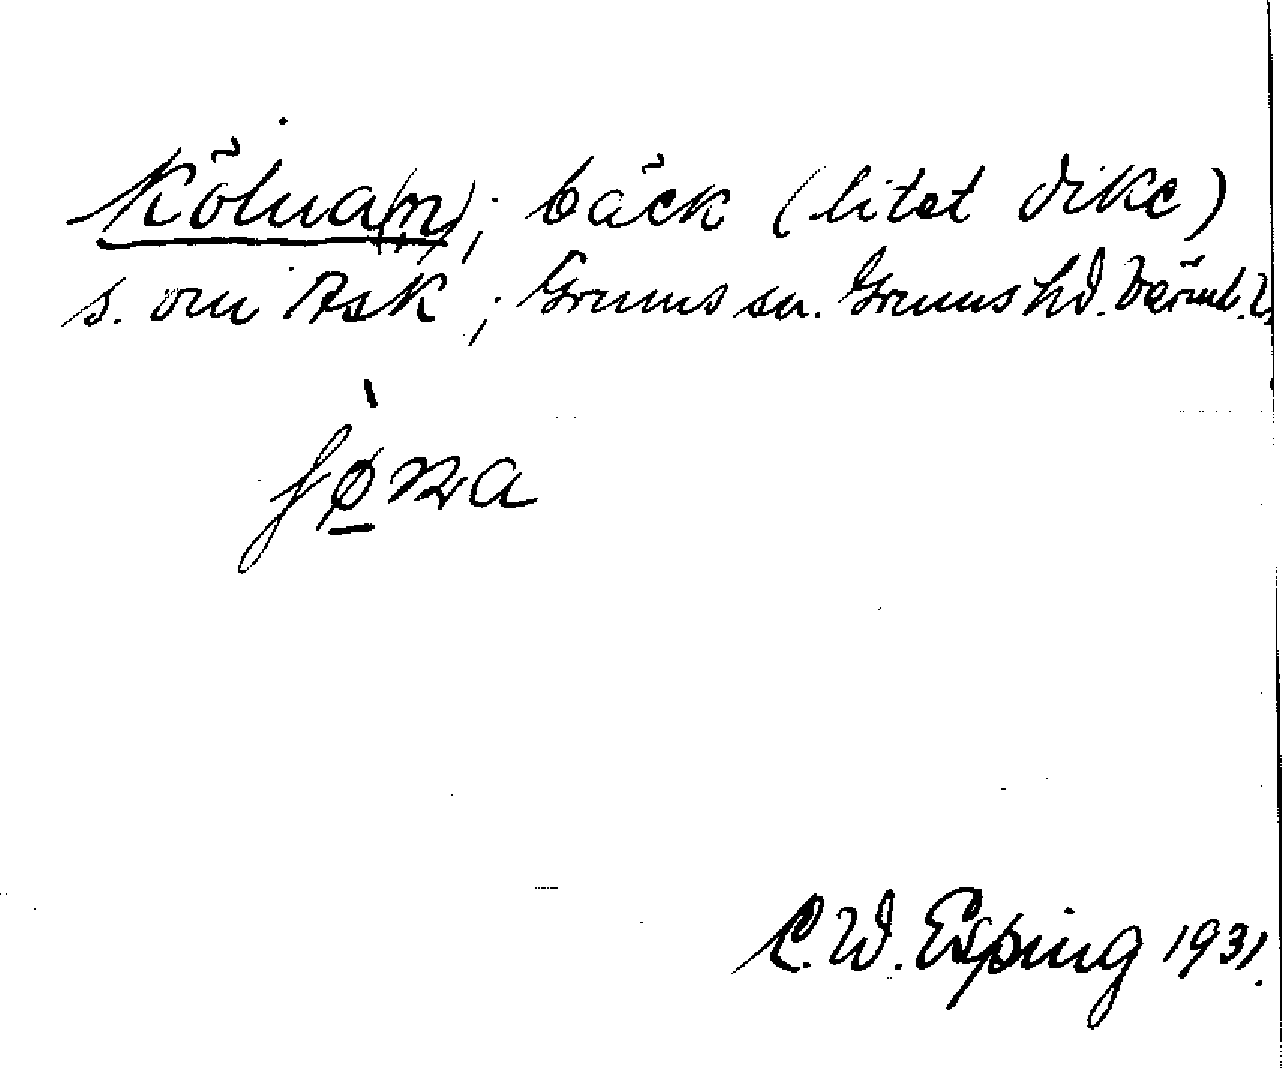 Kölna(n); bäck (litet dike)
s. om Ask; Grums sn. Grums hd. Värml.
C. W. Esping 1931.